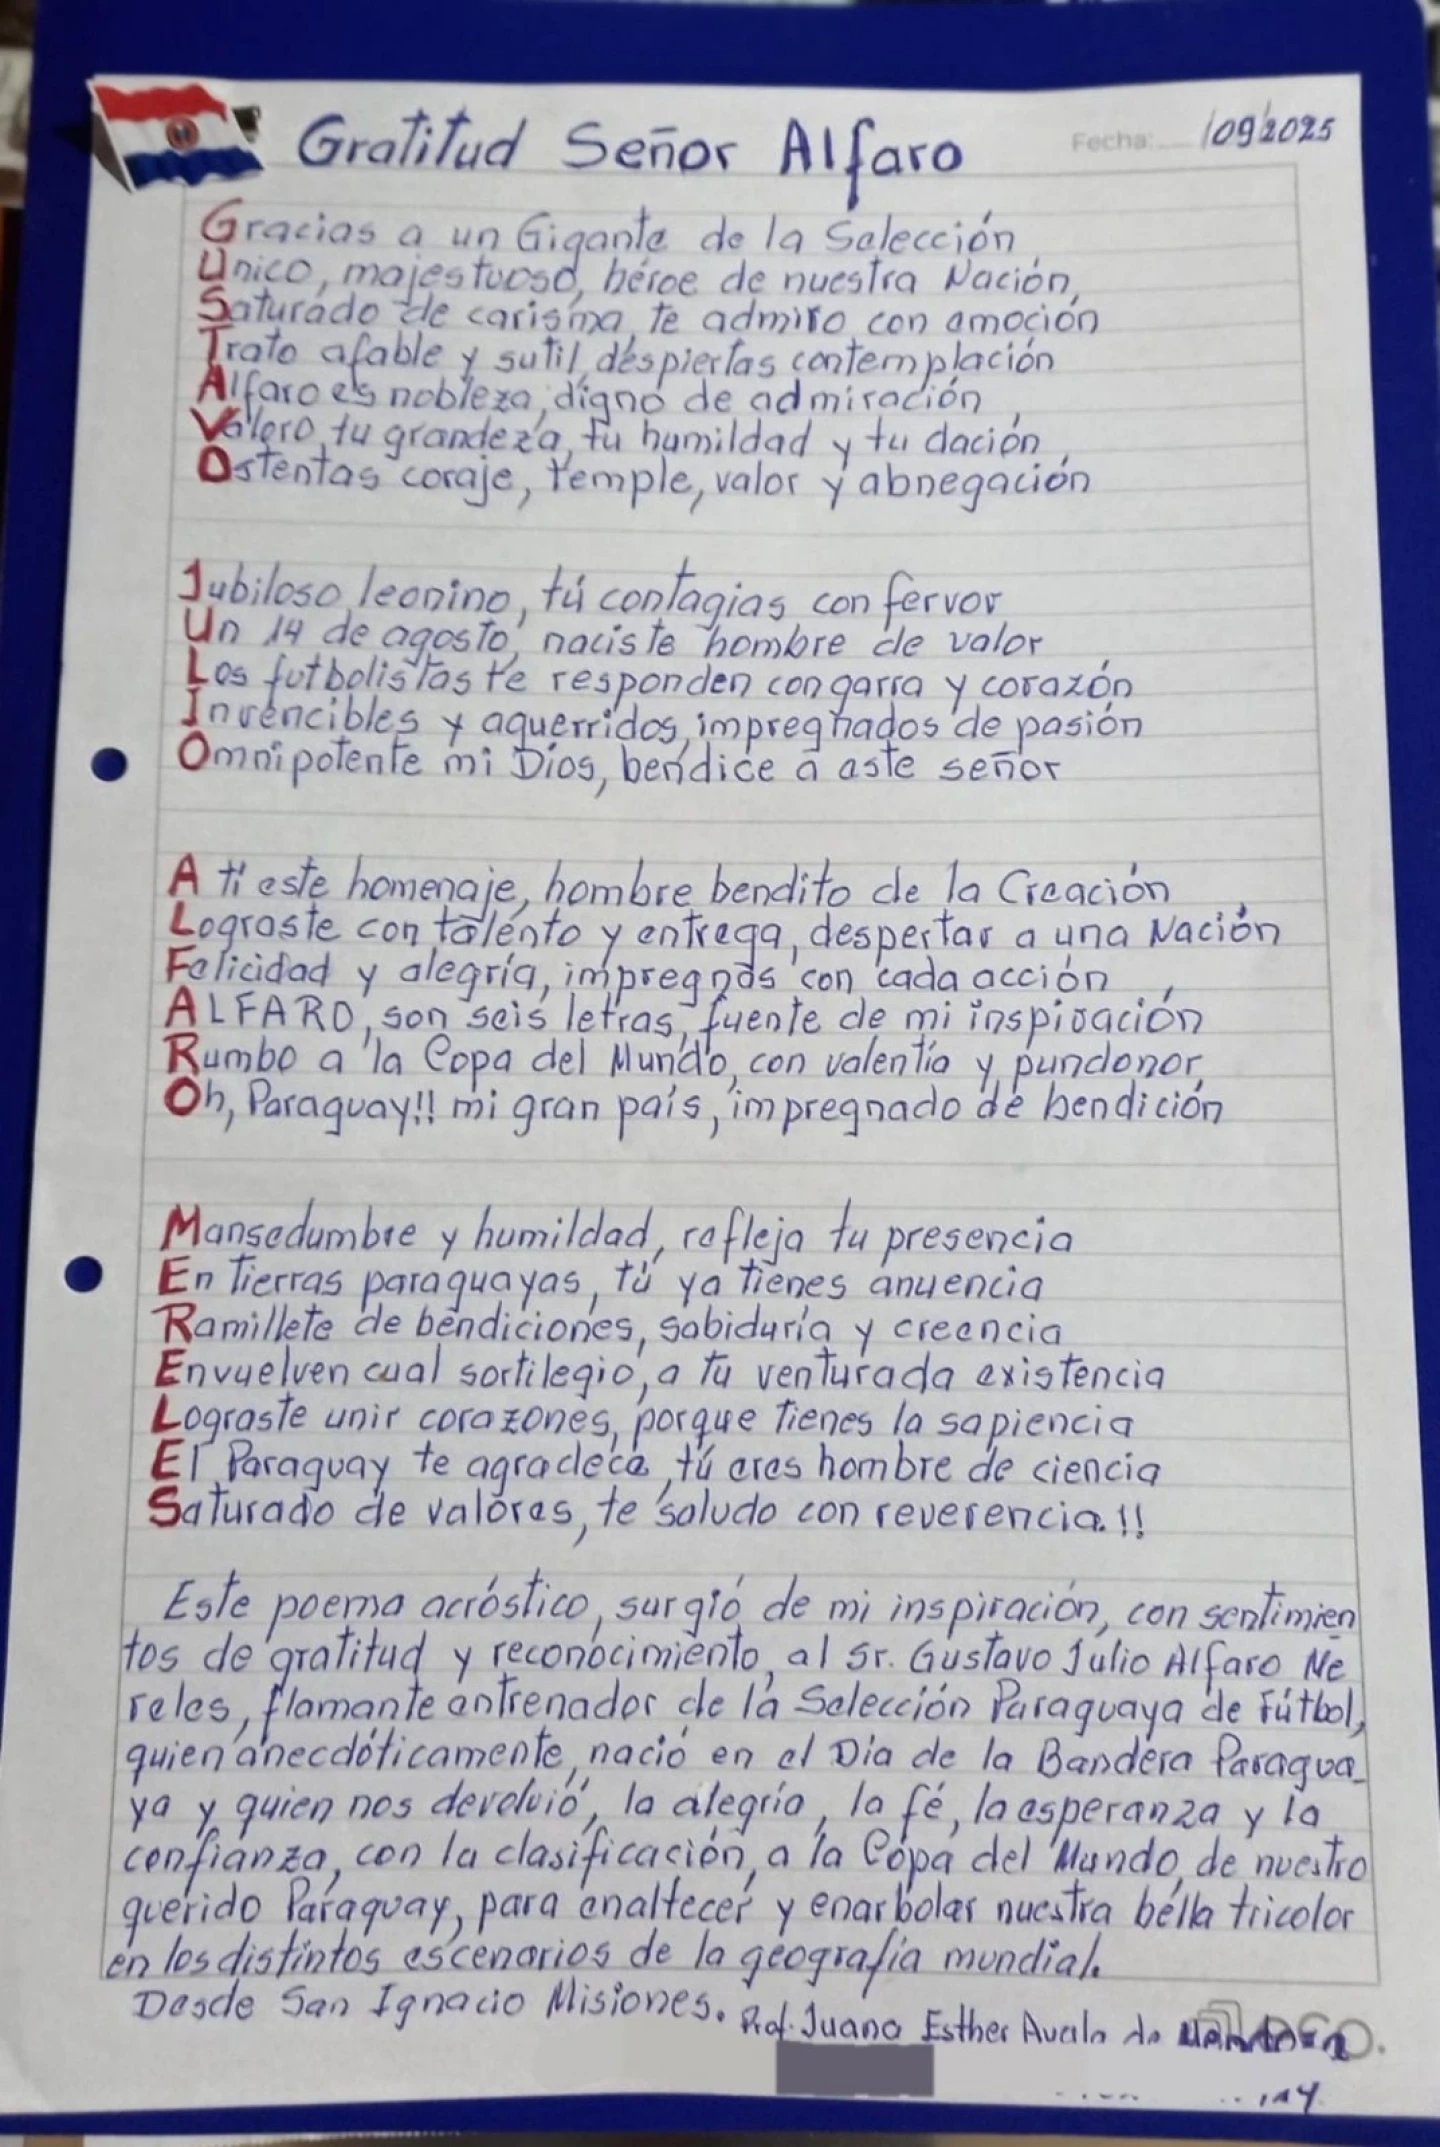 Gratitud Señor Alfaro
Fecha: /09/2025
Gracias a un Gigante de la Selección
Único, majestuoso, héroe de nuestra Nación,
Saturado de carisma, te admiro con emoción
Trato afable y sutil, despiertas contemplación
Alfaro es nobleza, digno de admiración
Valoro, tu grandeza, tu humildad y tu dación,
Ostentas coraje, temple, valor y abnegación
Jubiloso leonino, tú contagias con fervor
Un 14 de agosto, naciste hombre de valor
Los futbolistas te responden con garra y corazón
Invencibles y aguerridos, impregnados de pasión
Omnipotente mi Dios, bendice a este señor
A ti este homenaje, hombre bendito de la Creación
Lograste con talento y entrega, despertar a una Nación
Felicidad y alegría, impregnas con cada acción
ALFARO, son seis letras, fuente de mi inspiración
Rumbo a la Copa del Mundo, con valentía y pundonor,
Oh, Paraguay!! mi gran país, impregnado de bendición
Mansedumbre y humildad, refleja tu presencia
En Tierras paraguayas, tú ya tienes anuencia
Ramillete de bendiciones, sabiduría y creencia
Envuelven cual sortilegio, a tu venturada existencia
Lograste unir corazones, porque tienes la sapiencia
El Paraguay te agradece, tú eres hombre de ciencia
Saturado de valores, te saludo con reverencia.!!
Este poema acróstico, surgió de mi inspiración, con sentimien
tos de gratitud y reconocimiento, al Sr. Gustavo Julio Alfaro Me
reles, flamante entrenador de la Selección Paraguaya de Fútbol,
quien anecdóticamente, nació en el Día de la Bandera Paragua_
ya y quien nos devolvió, la alegría, la fé, la esperanza y la
confianza, con la clasificación, a la Copa del Mundo, de nuestro
querido Paraguay, para enaltecer y enarbolar nuestra bella tricolor
en los distintos escenarios de la geografía mundial.
Desde San Ignacio Misiones. Prof. Juana Esther Avala de Mendoza